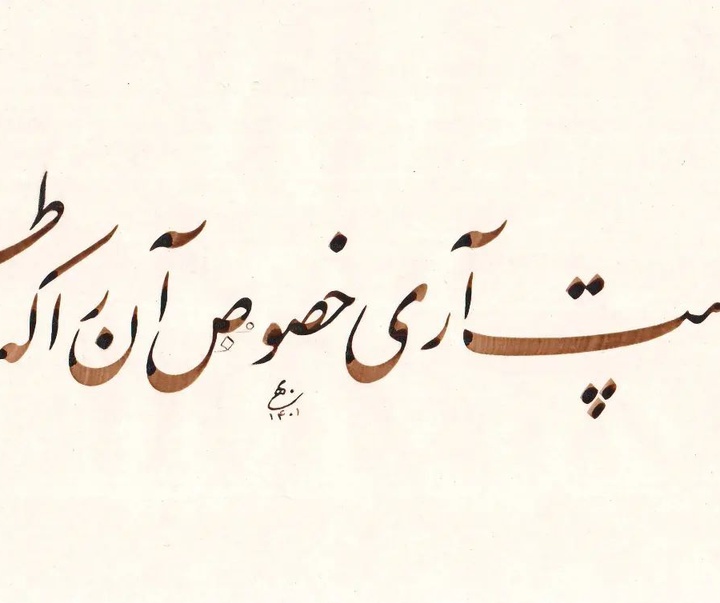 آری خصوص آن را که
۱۴۰۱